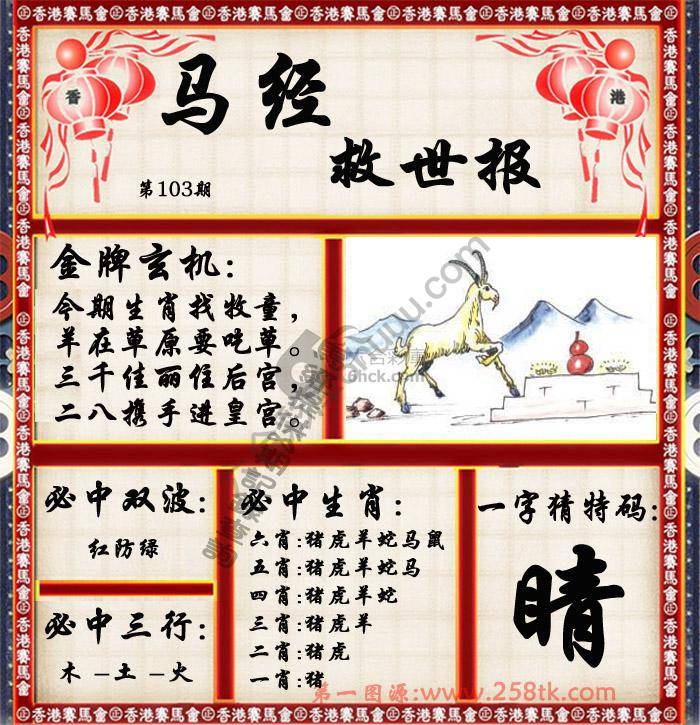 香港賽馬會
香
港
马经
救世报
第103期
金牌玄机：
今期生肖找牧童，
羊在草原要吃草。
三千佳丽住后宫，
二八携手进皇宫。
必中双波：
红防绿
必中三行：
木 –土 –火
必中生肖：
六肖:猪虎羊蛇马鼠
五肖:猪虎羊蛇马
四肖:猪虎羊蛇
三肖:猪虎羊
二肖:猪虎
一肖:猪
一字猜特码：
晴
第一图源:www.258tk.com